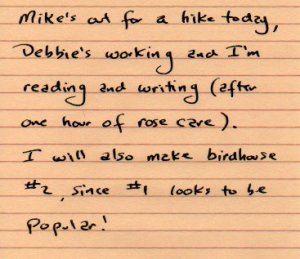 Mike's out for a hike today,
Debbie's working and I'm
reading and writing (after
one hour of rose care).
I will also make birdhouse
#2, since #1 looks to be
Popular!